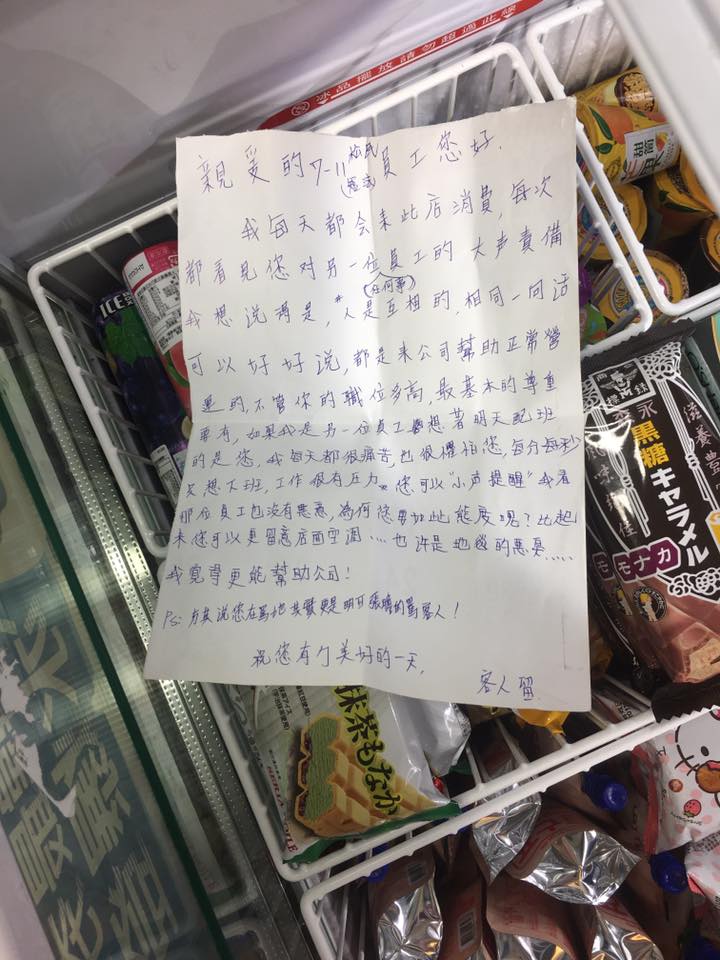 冰品擺放請勿超過此線
親愛的7-11員工您好.
我每天都会来此店消費,每次
都看見您对另一位員工的大声責備
我想说得是,*人是互相的,相同一句话
(任何事)
可以好好说,都是来公司幫助正常營
運的,不管你的職位多高,最基本的尊重
要有,如果我是另一位員工想著明天配班
的是您,我每天都很痛苦,也很懼怕您,每分每秒
只想下班,工作很有压力。您可以"小声提醒"我看
那位員工也沒有惡意,為何您要如此態度呢?比起
来您可以更留意店面空調....也許是地板的惡臭.....
我覺得更能幫助公司!
PS:与其说您在罵她其實更是明目張膽的罵客人!
祝您有个美好的一天,
客人留.
ICE
甜筒
黑糖キャラメル
モナカ
滋養豊
抹茶もなか